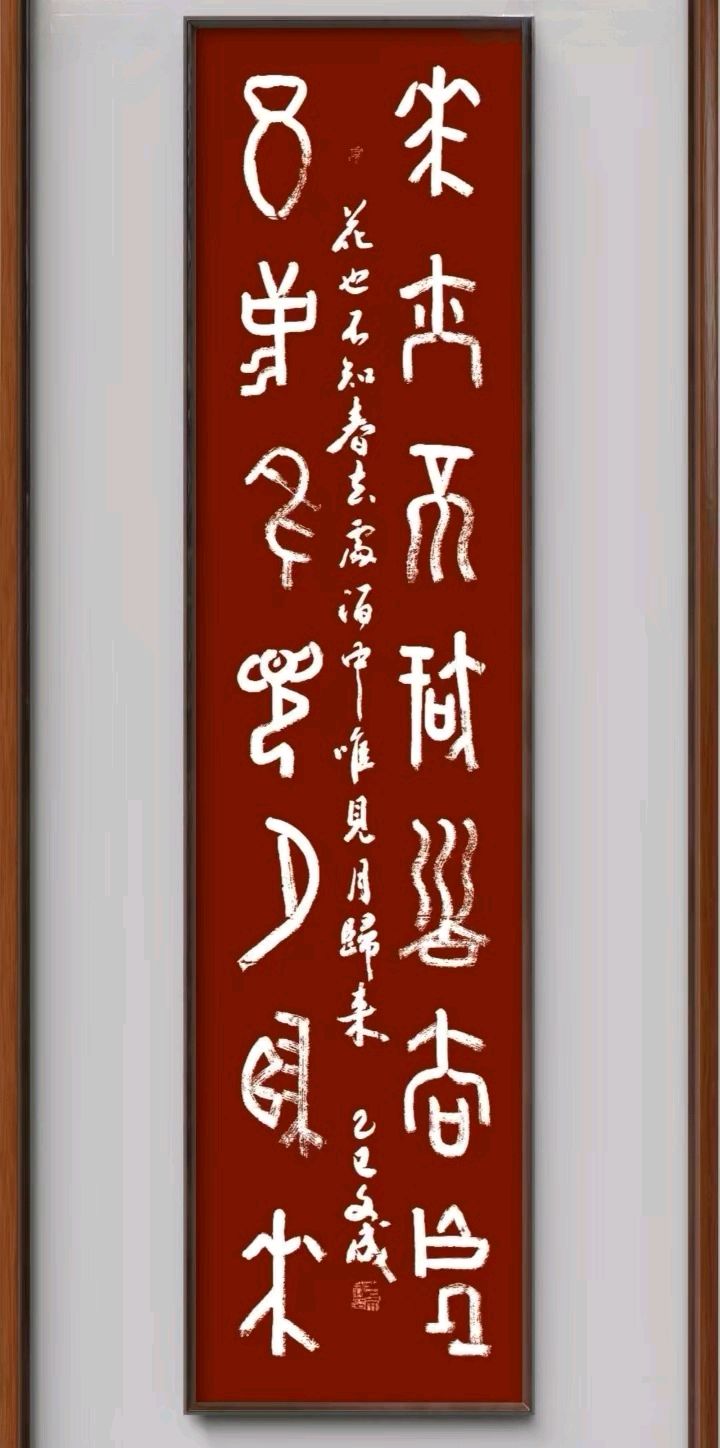 花亦不知春去處
酒中唯見月歸來
花也不知春去處酒中唯見月歸來 乙巳文成